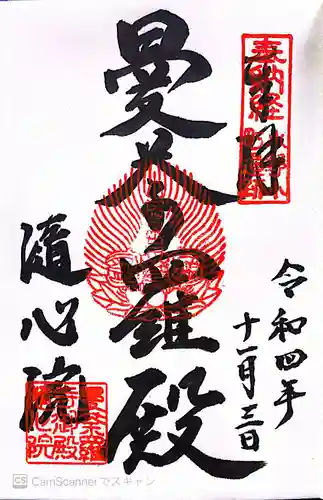 奉拝
曼荼羅殿
隨心院
令和四年
十一月三日
CamScannerでスキャン